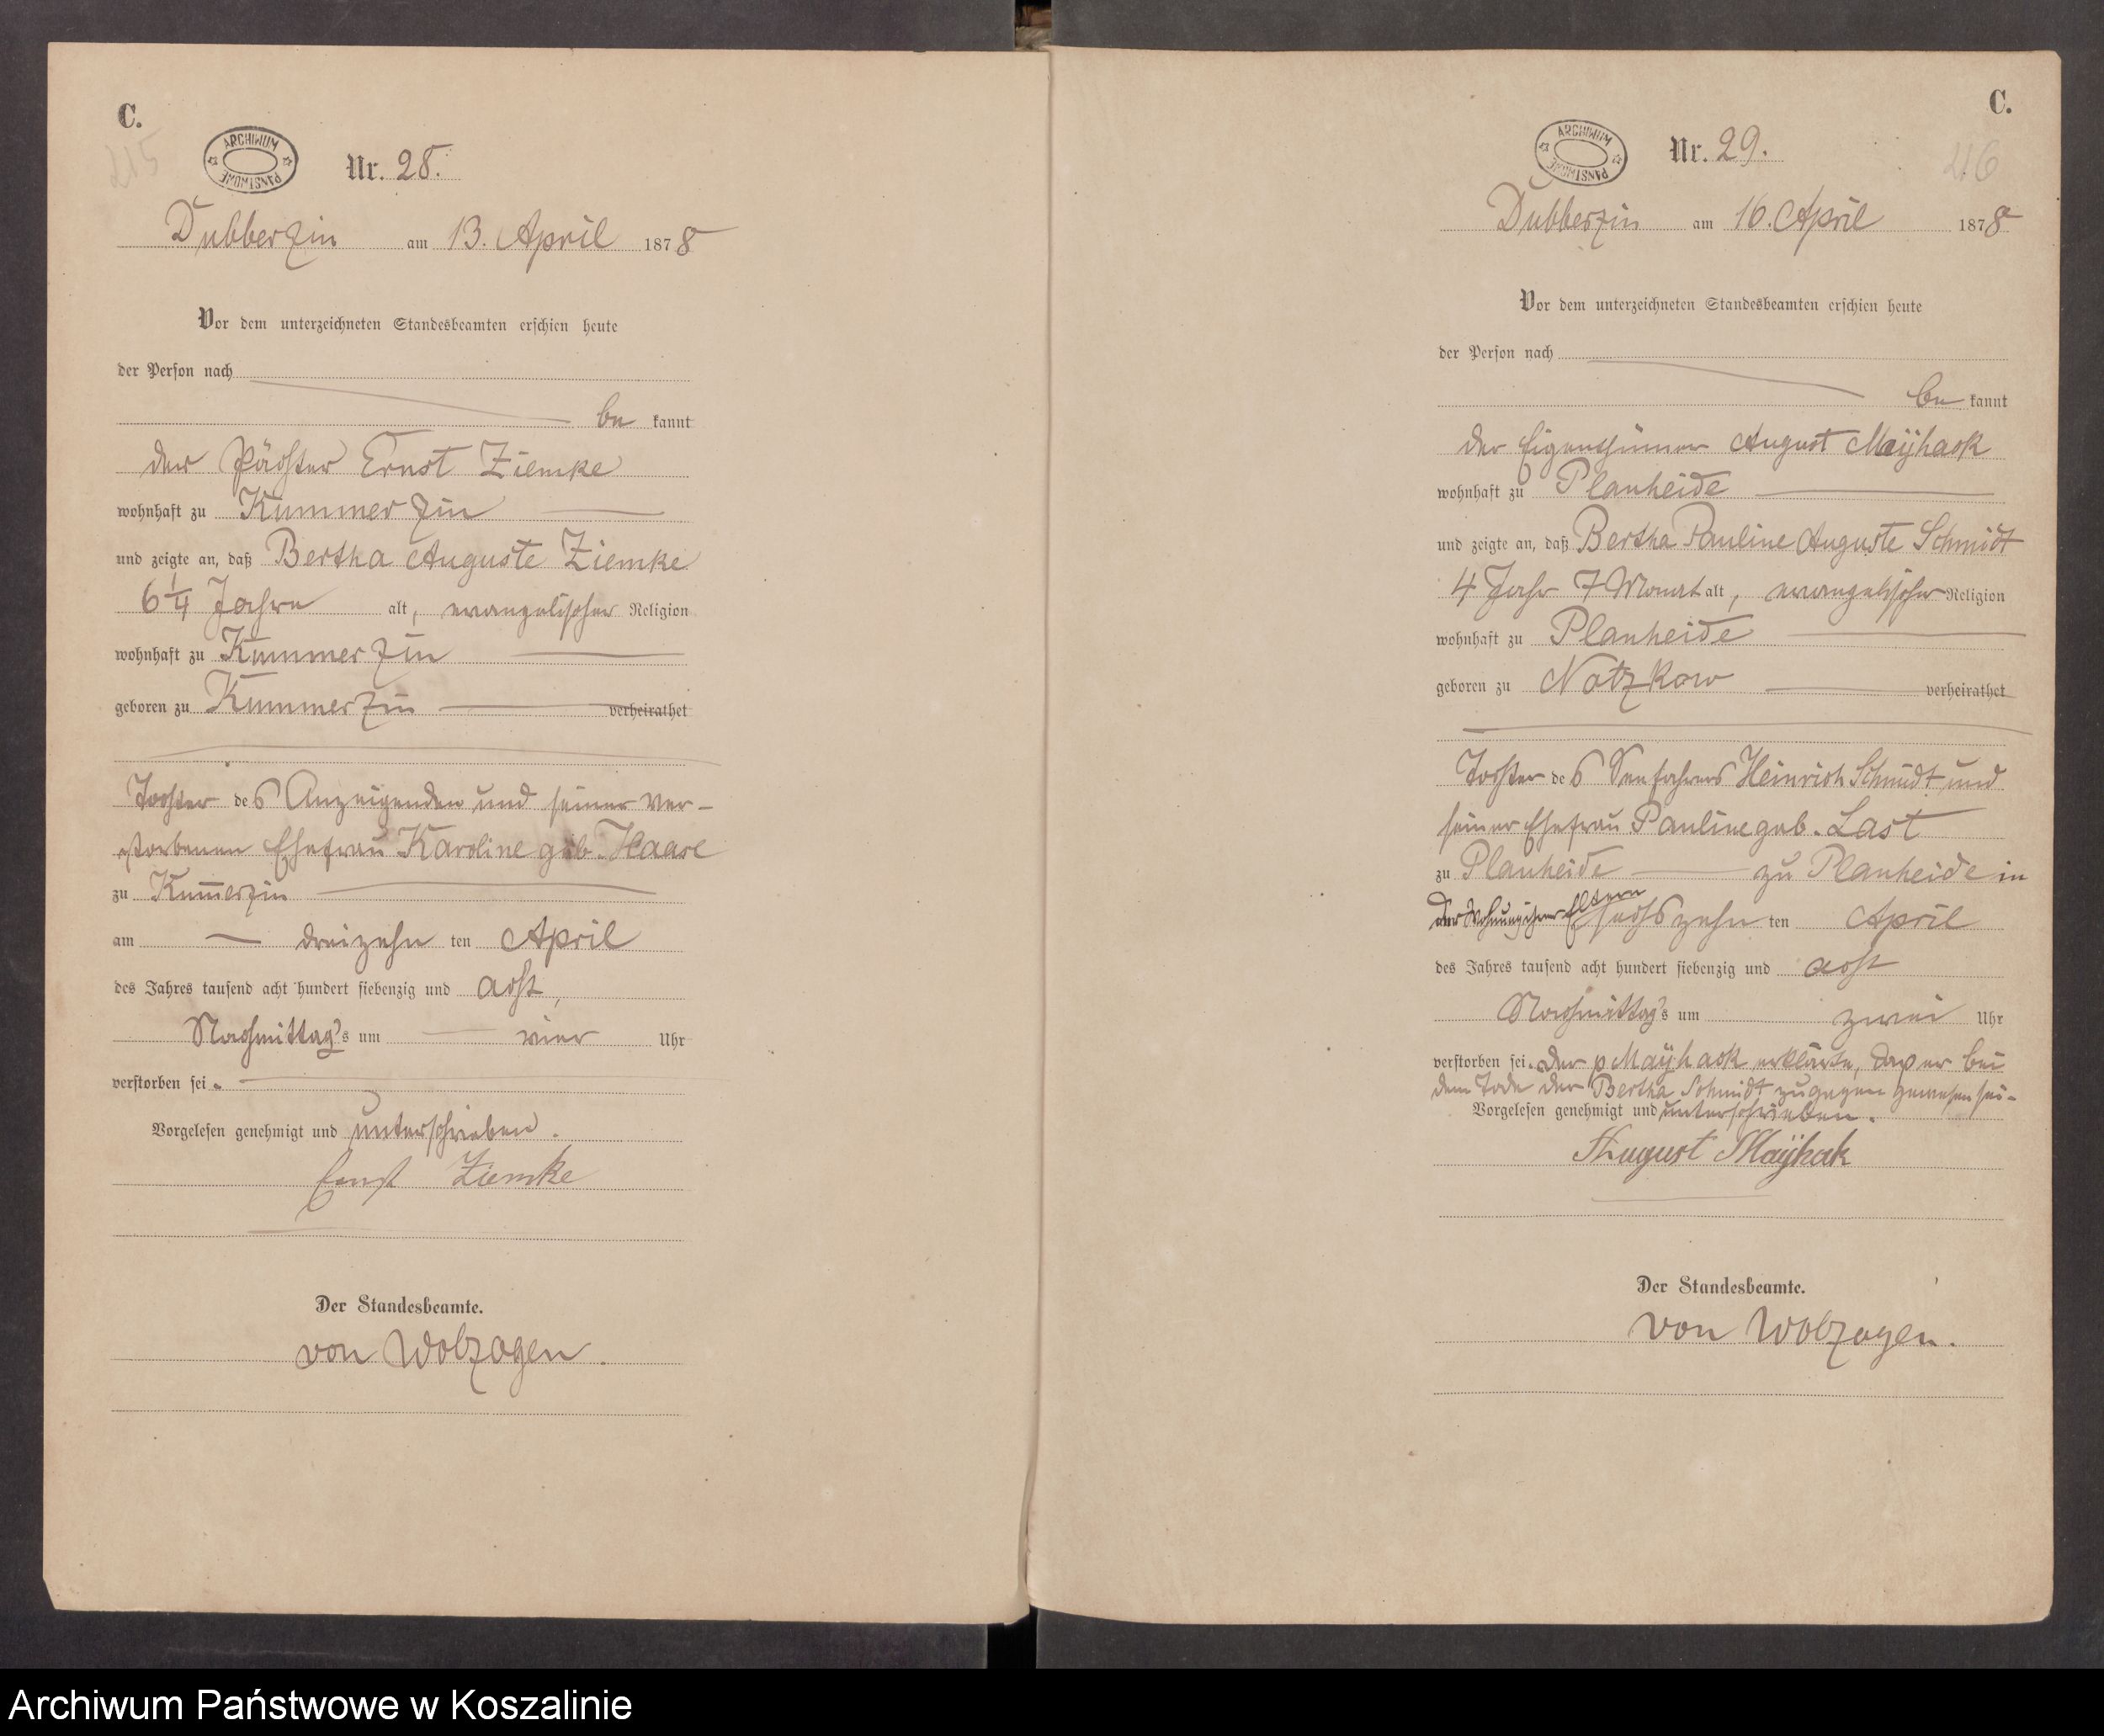 C.
215
ARCHIWUM PAŃSTWOWE
Nr. 28.
Dubberzin am 13. April 1878
Vor dem unterzeichneten Standesbeamten erschien heute
der Person nach
be kannt
der Pächter Ernst Ziemke
wohnhaft zu Kummerzin
und zeigte an, daß Bertha Auguste Ziemke
6 1/4 Jahre alt, evangelischer Religion
wohnhaft zu Kummerzin
geboren zu Kummerzin verheirathet
Tochter des Anzeigenden und seiner ver-
storbenen Ehefrau Karoline geb. Haase
zu Kum̅erzin
am dreizehn ten April
des Jahres tausend acht hundert siebenzig und acht,
Nachmittag's um vier Uhr
verstorben sei.
Vorgelesen genehmigt und unterschrieben.
Ernst Ziemke
Der Standesbeamte.
von Wolzogen.
C.
ARCHIWUM PAŃSTWOWE
Nr. 29.
Dubberzin am 16. April 1878
Vor dem unterzeichneten Standesbeamten erschien heute
der Person nach
be kannt
der Eigenthümer August Mayhack
wohnhaft zu Planheide
und zeigte an, daß Bertha Pauline Auguste Schmidt
4 Jahr 7 Monat alt, evangelischer Religion
wohnhaft zu Planheide
geboren zu Notzkow verheirathet
Tochter des Seefahrers Heinrich Schmidt und
seiner Ehefrau Pauline geb. Last
zu Planheide zu Planheide in
der Wohnung ihrer Eltern sechszehn ten April
des Jahres tausend acht hundert siebenzig und acht
Nachmittag's um zwei Uhr
verstorben sei. Der p Mayhack erklärte, daß er bei
dem Tode der Bertha Schmidt zugegen gewesen sei.
Vorgelesen genehmigt und unterschrieben.
August Mayhak
Der Standesbeamte.
von Wolzogen.
Archiwum Państwowe w Koszalinie